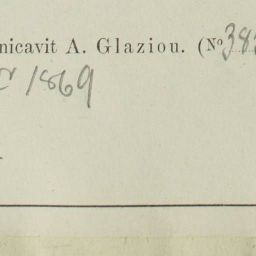 nicavit A. Glaziou. (Nº 38
1869